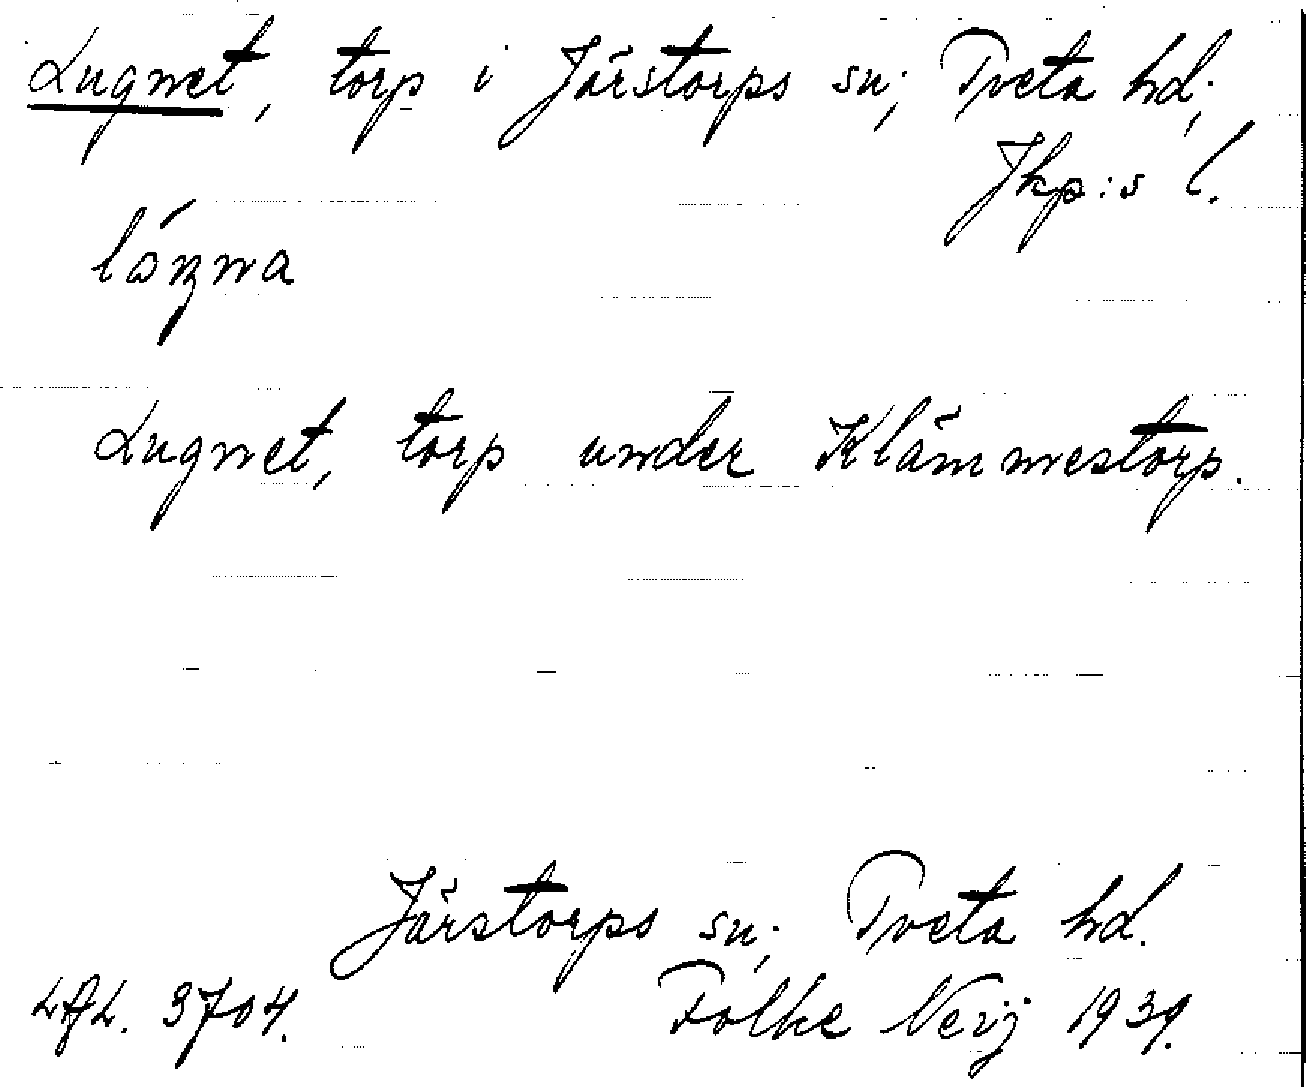 Lugnet, torp i Järstorps sn; Tveta hd;
Jkp:s l.
Lugnet, torp under Klämmestorp.
Järstorps sn; Tveta hd.
3704. Folke Neij 1939.